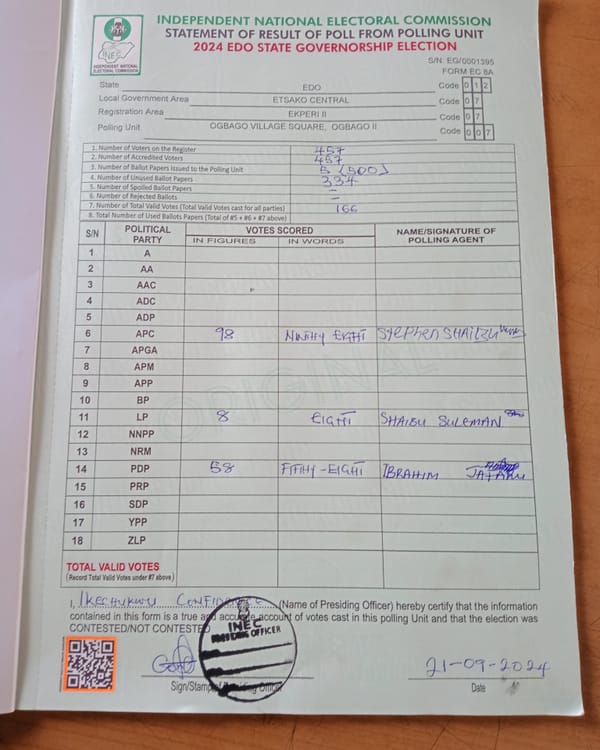 INDEPENDENT NATIONAL ELECTORAL COMMISSION
STATEMENT OF RESULT OF POLL FROM POLLING UNIT
2024 EDO STATE GOVERNORSHIP ELECTION
INEC
INDEPENDENT NATIONAL ELECTORAL COMMISSION
S/N: EG/0001395
FORM EC 8A
State EDO Code 0 1 2
Local Government Area ETSAKO CENTRAL Code 0 7
Registration Area EKPERI II Code 0 7
Polling Unit OGBAGO VILLAGE SQUARE, OGBAGO II Code 0 0 7
1. Number of Voters on the Register 457
2. Number of Accredited Voters 457
3. Number of Ballot Papers Issued to the Polling Unit 5 (500)
4. Number of Unused Ballot Papers 334
5. Number of Spoiled Ballot Papers –
6. Number of Rejected Ballots –
7. Number of Total Valid Votes (Total Valid Votes cast for all parties) 166
8. Total Number of Used Ballots Papers (Total of #5 + #6 + #7 above)
S/N POLITICAL PARTY VOTES SCORED NAME/SIGNATURE OF POLLING AGENT
IN FIGURES IN WORDS
1 A
2 AA
3 AAC
4 ADC
5 ADP
6 APC 98 NINTHY EIGHT STEPHEN
7 APGA
8 APM
9 APP
10 BP
11 LP 8 EIGHT SHAIBU SULEMAN
12 NNPP
13 NRM
14 PDP 58 FIFTHY-EIGHT IBRAHIM
15 PRP
16 SDP
17 YPP
18 ZLP
ORIGINAL
TOTAL VALID VOTES
(Record Total Valid Votes under #7 above)
I, IKECHUKWU CONFIDENCE (Name of Presiding Officer) hereby certify that the information
contained in this form is a true and accurate account of votes cast in this polling Unit and that the election was
CONTESTED/NOT CONTESTED
INEC
PRESIDING OFFICER
21-09-2024
Sign/Stamp of Presiding Officer Date